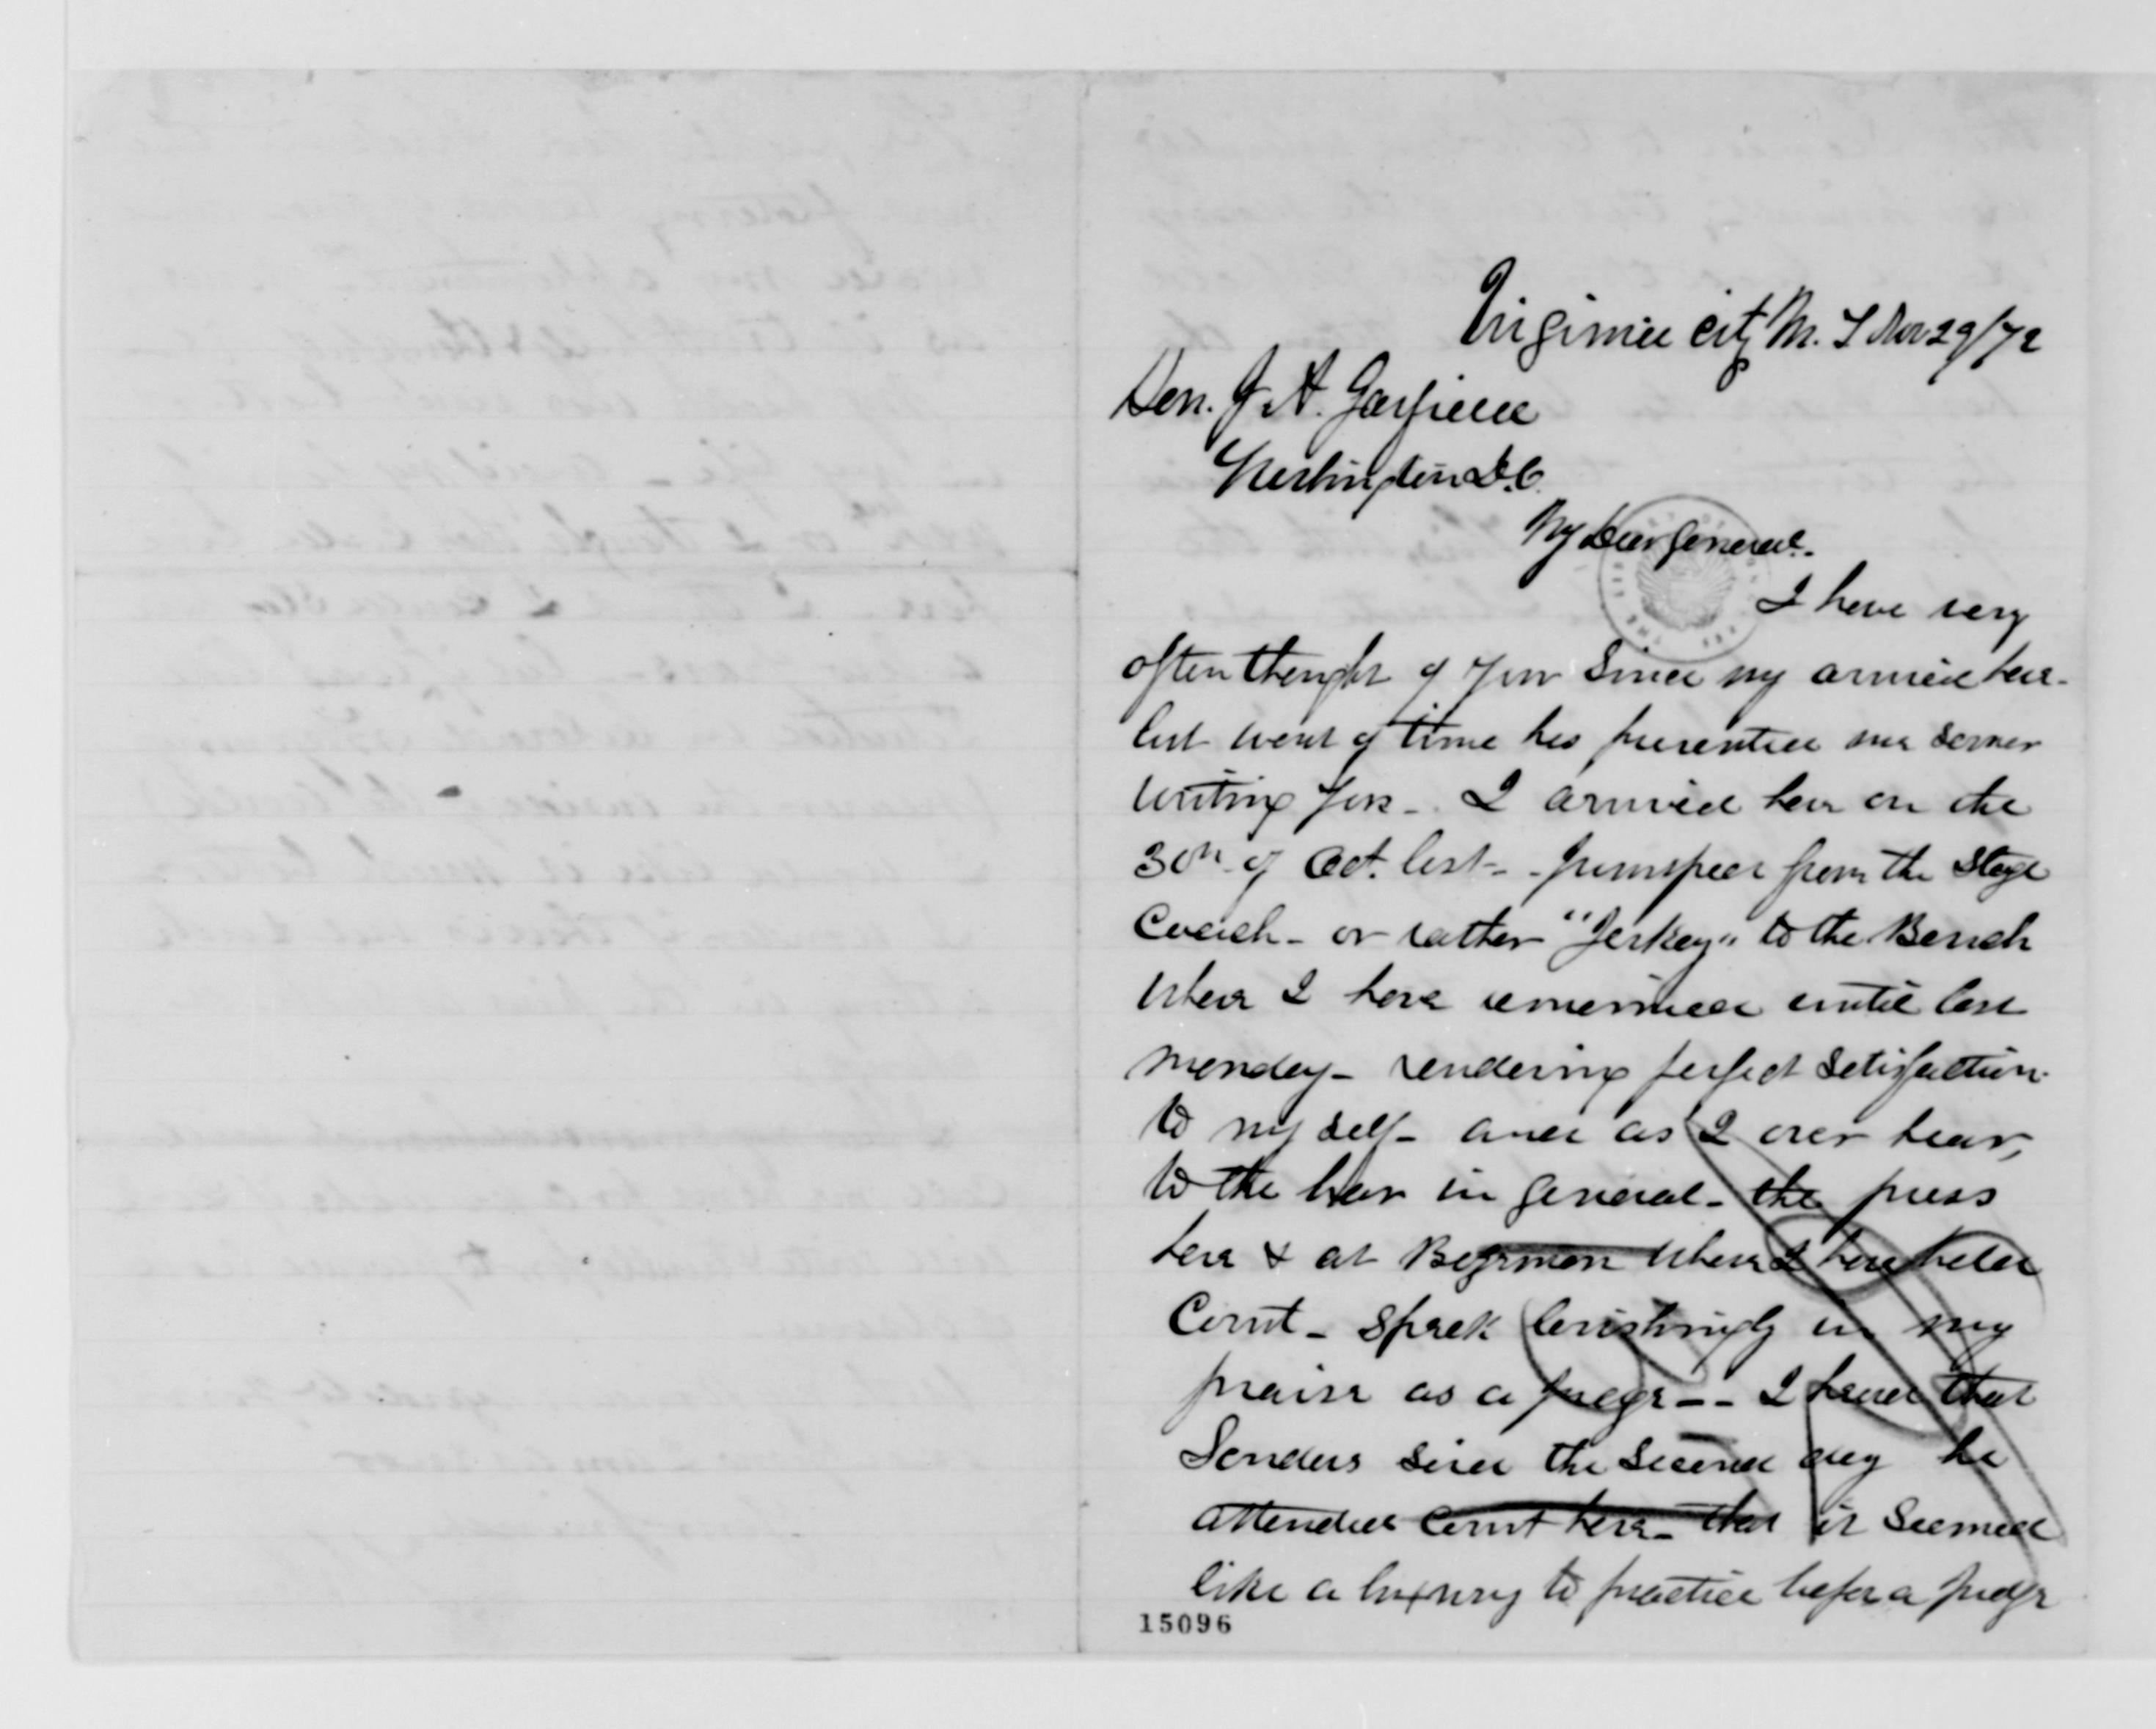 Virginia city M. T Nov 29/72
Hon. J. A. Garfield
Washington D.C.
My Dear General.
I have very
often thought of you since my arrival here-
but want of time has prevented me sooner
writing you - I arrived here on the
30th of Oct. last - - jumped from the Stage
Coach - or rather "Jerkey" to the Bench
where I have remained until last
Monday - rendering perfect satisfaction
to my self - and as I over hear,
to the bar in general - the press
here & at Bozeman where I have held
Court - speak lavishingly in my
praise as a judge - - I heard that
Sanders said the second day he
attended Court here - that it seemed
like a luxury to practice before a judge
15096